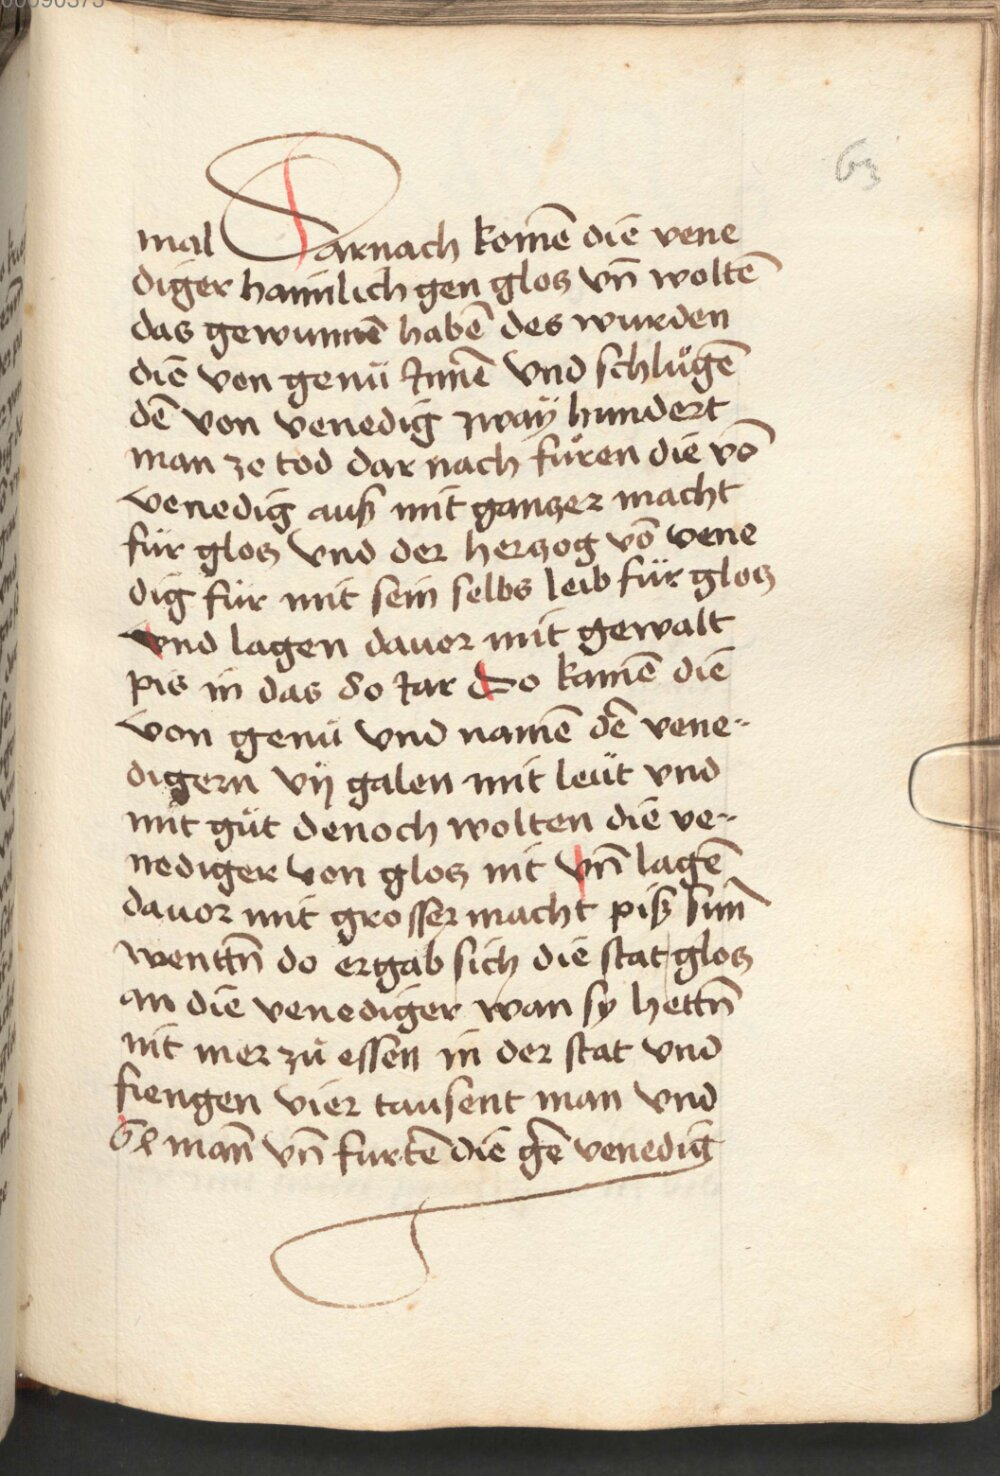 63
mal Darnach komē die vene
diger haimlich gen glos vn̄ woltē
das gewunnē habē des wurden
die von genu Innē vnd schlůgē
dē von venedig zwaÿ hundert
man ze tod dar nach fůren die vō
venedig auß mit ganzer macht
für glos vnd der herzog vō vene
dig für mit sein selbs leib für glos
vnd lagen dauor mit gewalt
pis in das 80 Jar Do kamē die
von genu vnd namē dē vene-
digern vij galen mit leüt vnd
mit gůt denoch wolten die ve-
nediger von glos nit vn̄ lagē
dauor mit grosser macht piß Sun
wenttn̄ do ergab sich die stat glos
an die venediger wan sy hettn̄
nit mer zů essen in der stat vnd
fiengen vier tausent man vnd
mann vn̄ furtē die gē venedig